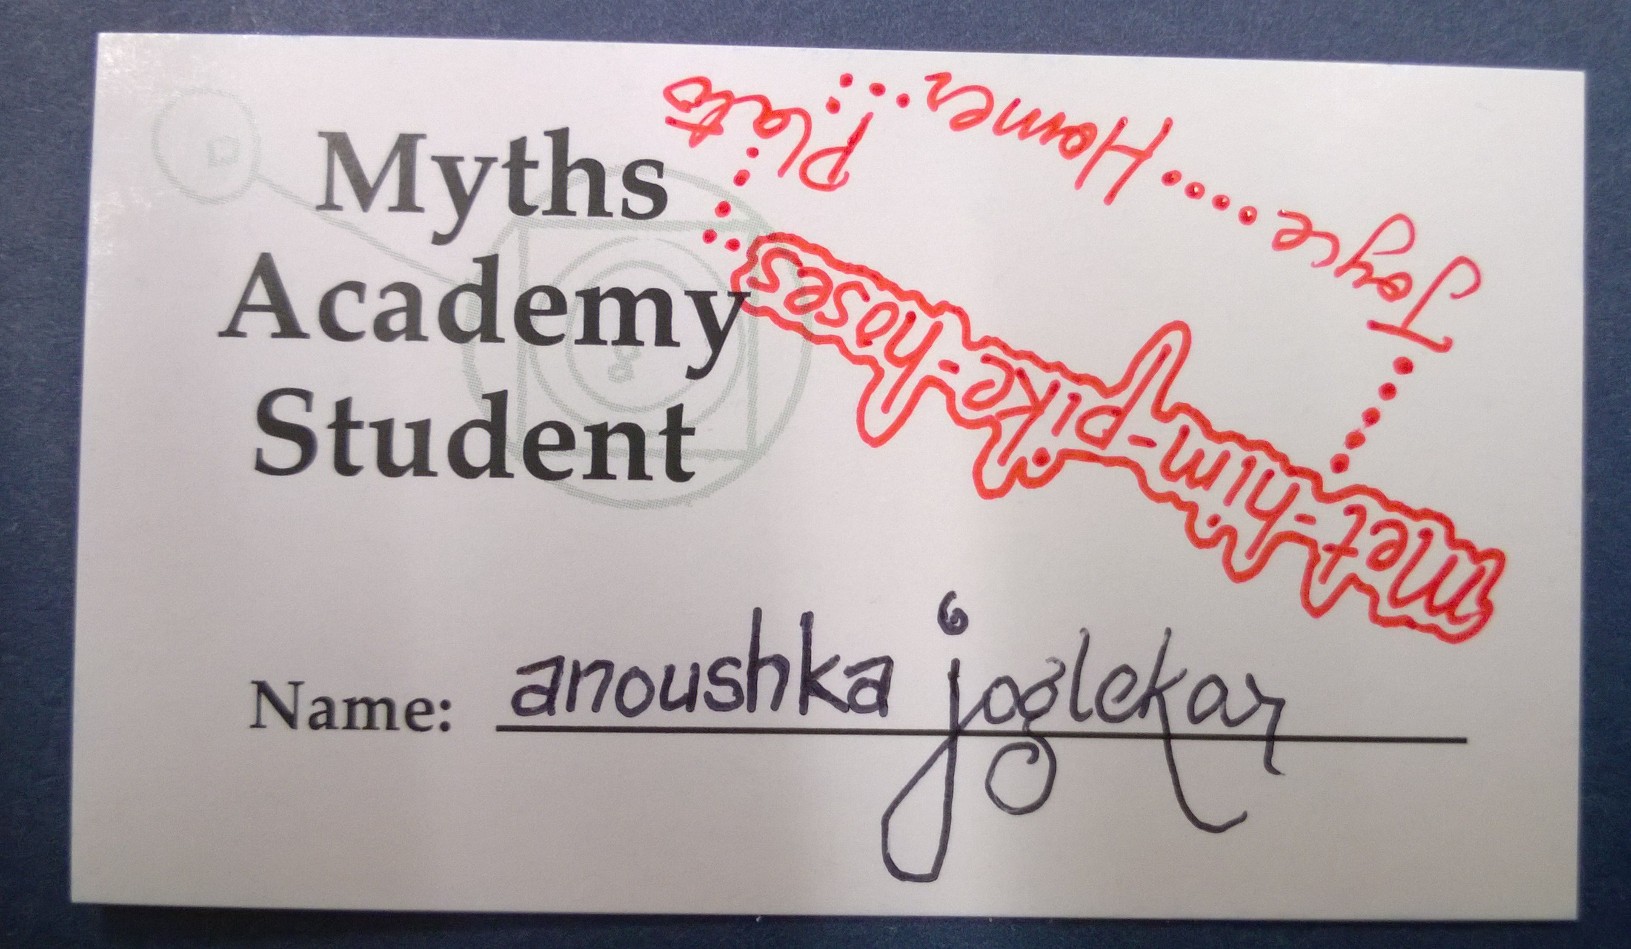 Myths
Academy
Student
Name: anoushka joglekar
met-him-pike-hoses
Joyce....Homer...Plato